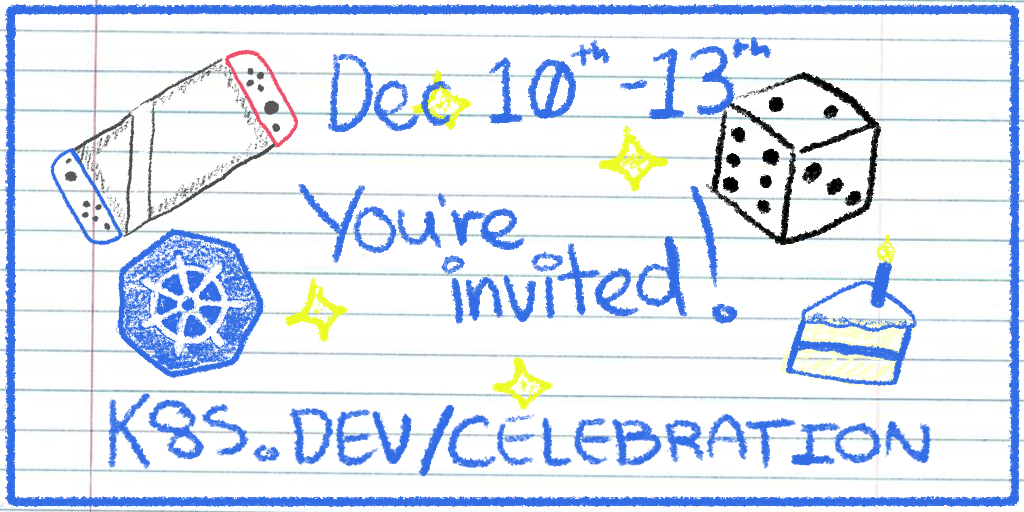 Dec 10th-13th
You're
invited!
K8S.DEV/CELEBRATION